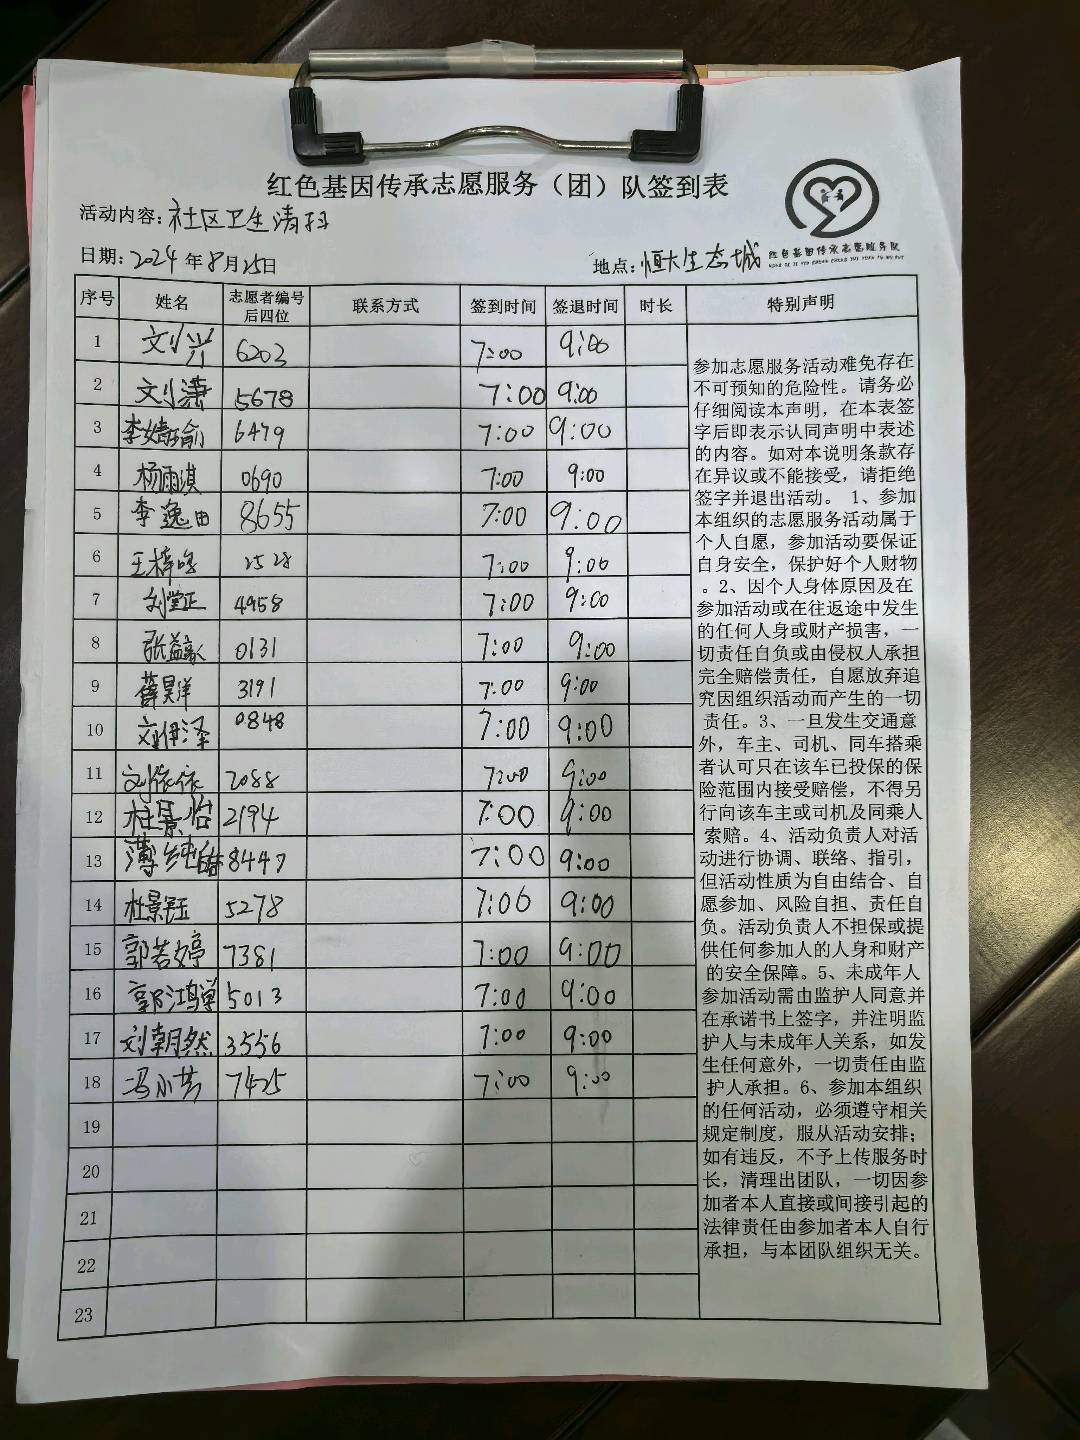 红色基因传承志愿服务（团）队签到表
活动内容：社区卫生清扫
日期：2024年8月25日 地点：恒大生态城
红色基因传承志愿服务队
序号 姓名 志愿者编号后四位 联系方式 签到时间 签退时间 时长 特别声明
1 刘兴 6203 7:00 9:00
2 刘潇 5678 7:00 9:00
3 李婧瑜 6479 7:00 9:00
4 杨雨淇 0690 7:00 9:00
5 李逸田 8655 7:00 9:00
6 王梓 2528 7:00 9:00
7 刘堂正 4958 7:00 9:00
8 张益豪 0131 7:00 9:00
9 薛昊洋 3191 7:00 9:00
10 刘伊泽 0848 7:00 9:00
11 刘依依 2088 7:00 9:00
12 杜景怡 2194 7:00 9:00
13 薄纯 8447 7:00 9:00
14 杜景钰 5278 7:06 9:00
15 郭若婷 7381 7:00 9:00
16 郭鸿 5013 7:00 9:00
17 刘朝然 3556 7:00 9:00
18 冯小芳 7425 7:00 9:00
19
20
21
22
23
参加志愿服务活动难免存在
不可预知的危险性。请务必
仔细阅读本声明，在本表签
字后即表示认同声明中表述
的内容。如对本说明条款存
在异议或不能接受，请拒绝
签字并退出活动。 1、参加
本组织的志愿服务活动属于
个人自愿，参加活动要保证
自身安全，保护好个人财物
。2、因个人身体原因及在
参加活动或在往返途中发生
的任何人身或财产损害，一
切责任自负或由侵权人承担
完全赔偿责任，自愿放弃追
究因组织活动而产生的一切
责任。3、一旦发生交通意
外，车主、司机、同车搭乘
者认可只在该车已投保的保
险范围内接受赔偿，不得另
行向该车主或司机及同乘人
索赔。4、活动负责人对活
动进行协调、联络、指引，
但活动性质为自由结合、自
愿参加、风险自担、责任自
负。活动负责人不担保或提
供任何参加人的人身和财产
的安全保障。5、未成年人
参加活动需由监护人同意并
在承诺书上签字，并注明监
护人与未成年人关系，如发
生任何意外，一切责任由监
护人承担。6、参加本组织
的任何活动，必须遵守相关
规定制度，服从活动安排；
如有违反，不予上传服务时
长，清理出团队，一切因参
加者本人直接或间接引起的
法律责任由参加者本人自行
承担，与本团队组织无关。